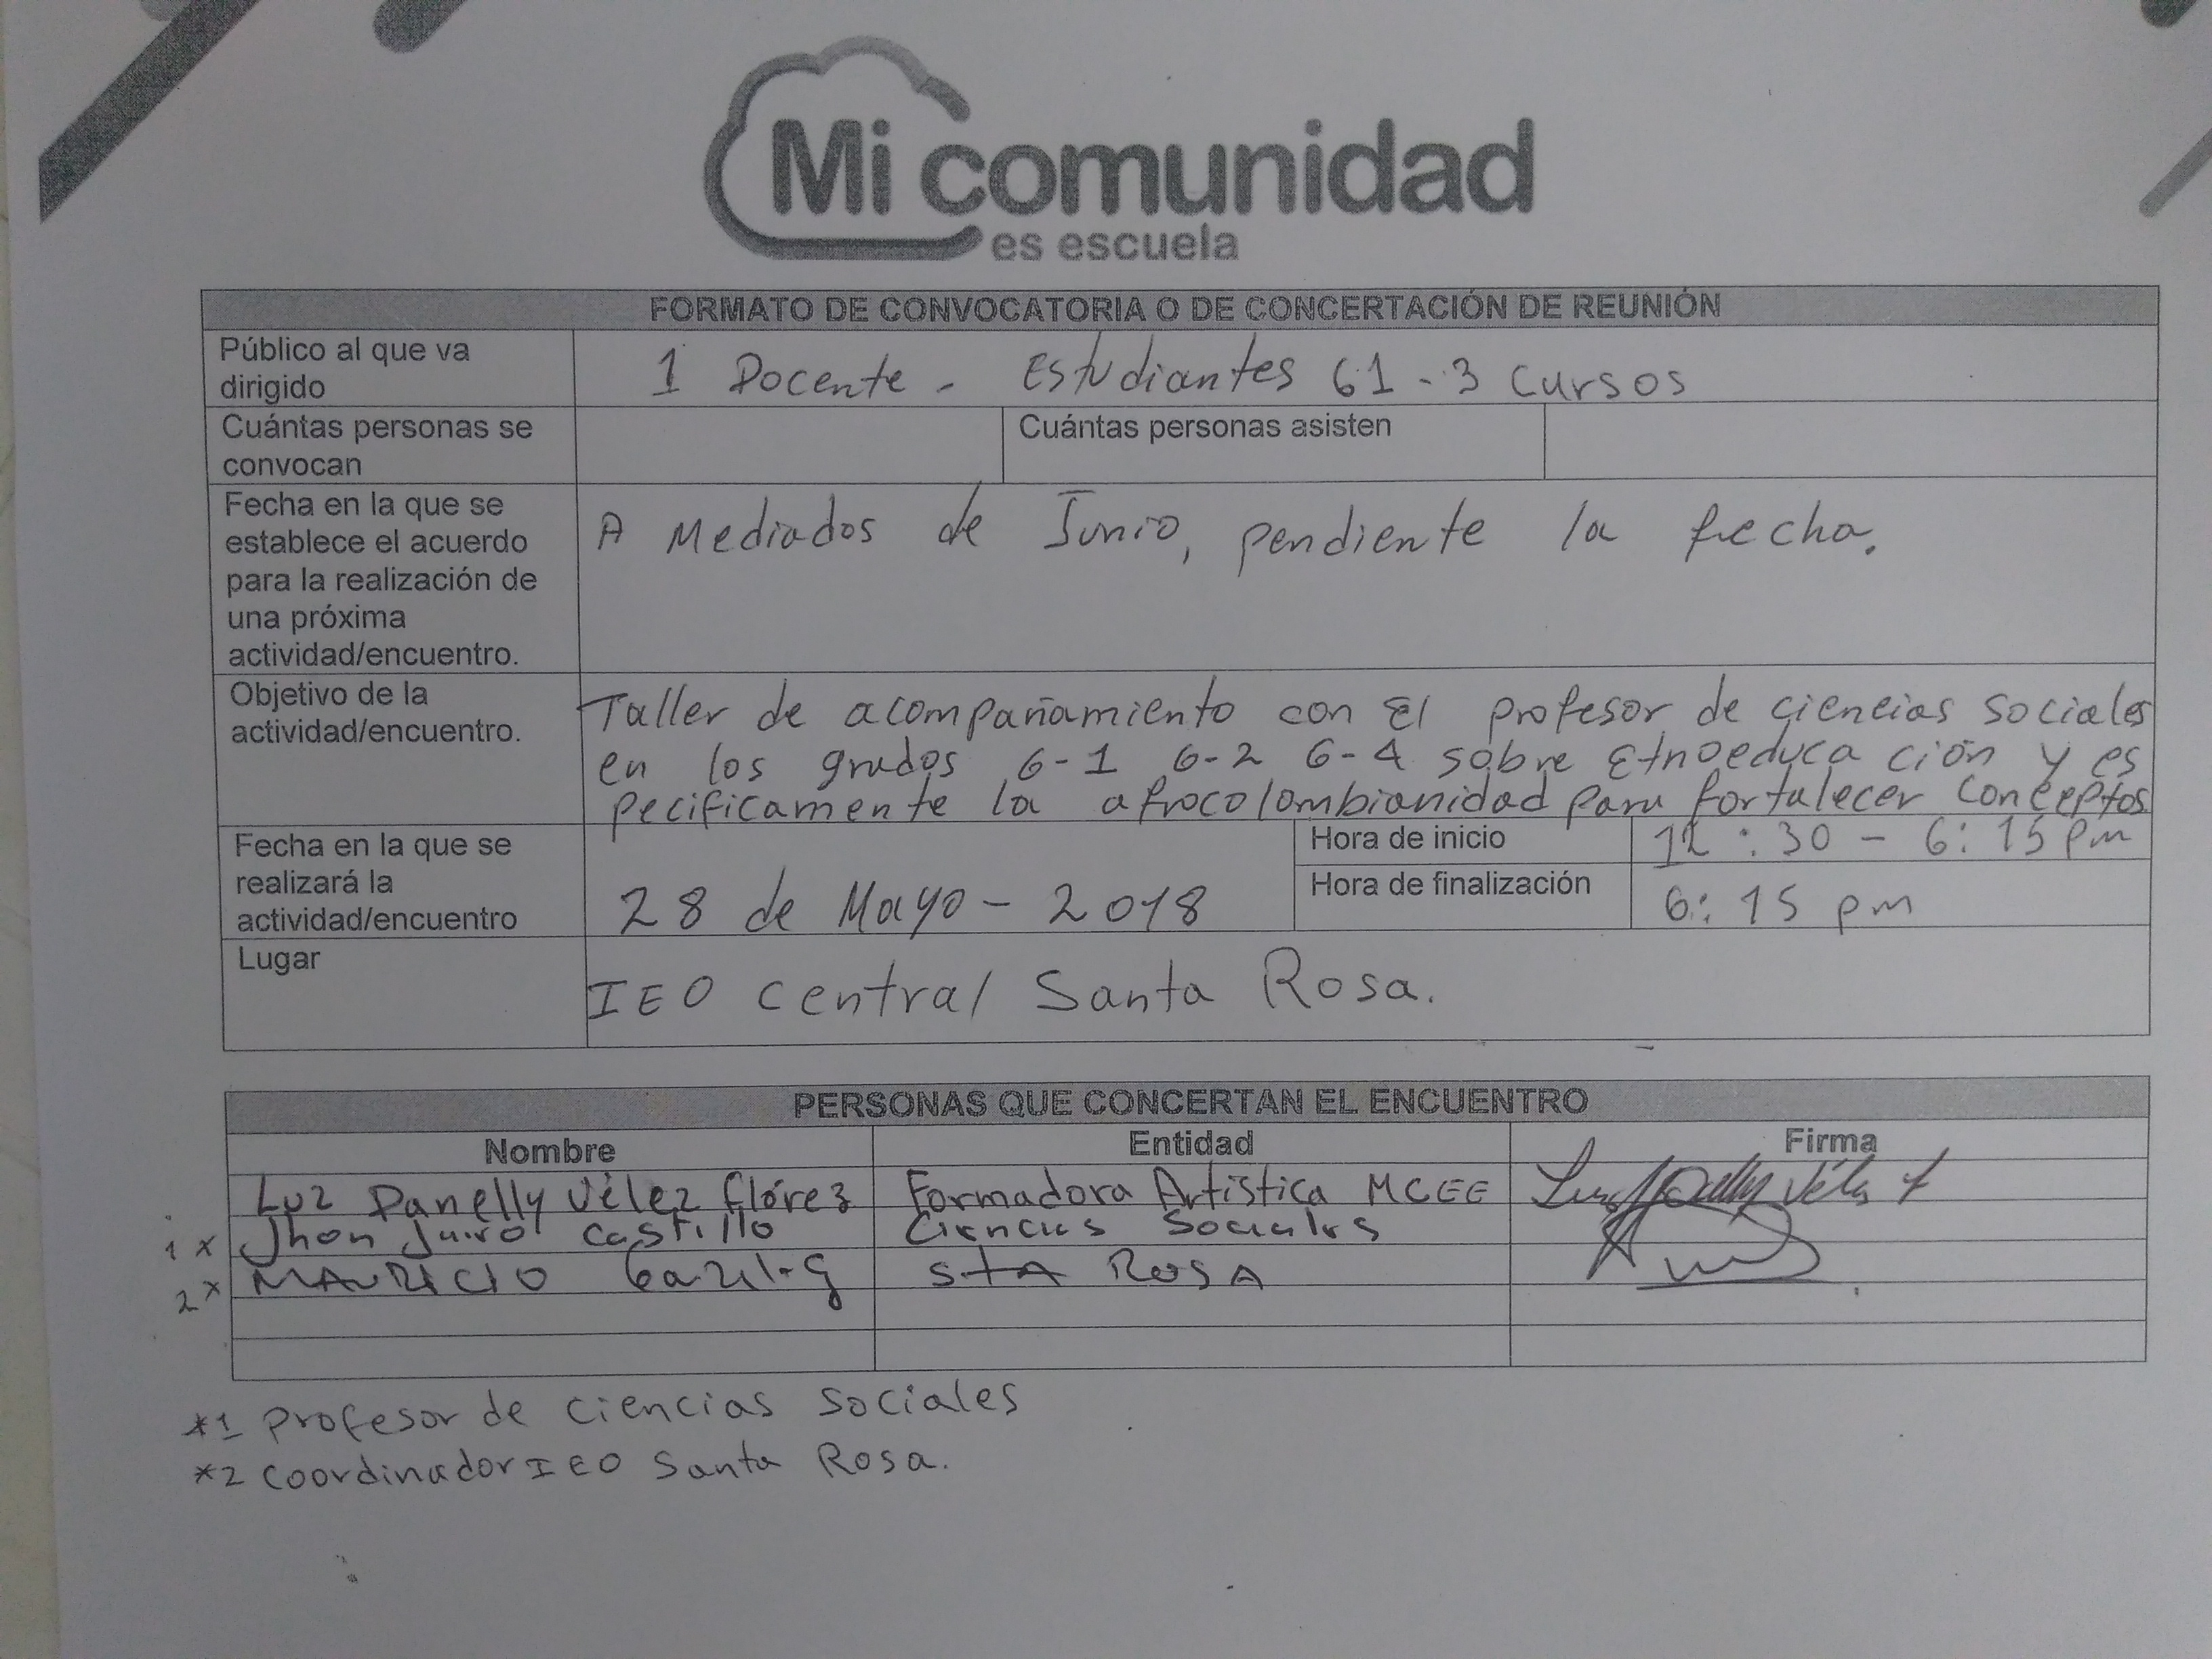 Mi comunidad
es escuela
FORMATO DE CONVOCATORIA O DE CONCERTACIÓN DE REUNIÓN
Público al que va
dirigido
1 Docente - Estudiantes 61 - 3 Cursos
Cuántas personas se
convocan
Cuántas personas asisten
Fecha en la que se
establece el acuerdo
para la realización de
una próxima
actividad/encuentro.
A Mediados de Junio, pendiente la fecha.
Objetivo de la
actividad/encuentro.
Taller de acompañamiento con El profesor de ciencias sociales
en los grados 6-1 6-2 6-4 sobre Etnoeduca ción y es
pecificamente la afrocolombianidad para fortalecer conceptos
Fecha en la que se
realizará la
actividad/encuentro
28 de Mayo - 2018
Hora de inicio
12:30 - 6:15 pm
Hora de finalización
6:15 pm
Lugar
IEO central Santa Rosa.
PERSONAS QUE CONCERTAN EL ENCUENTRO
Nombre Entidad Firma
Luz Danelly Vélez Flórez Formadora Artística MCEE
1 x Jhon Jairo Castillo Ciencias Sociales
2 x MAURICIO StA ROSA
*1 Profesor de Ciencias Sociales
*2 Coordinador IEO Santa Rosa.